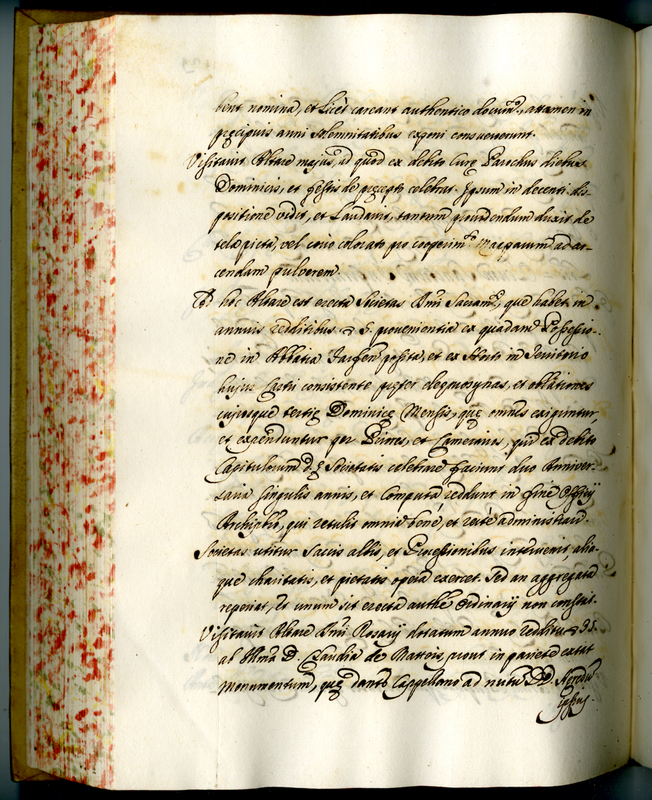 bent nomina, et licèt careant authentico docum.to, attamen in
præcipuis anni solemnitatibus exponi consueverunt.
Visitavit Altare majus, ad quod ex debito Curæ Parochus diebus
Dominicis, et festis de præcepto celebrat. Ipsum in decenti dis-
positione vidit, et laudavit, tantum providendum duxit de
tela picta, vel corio colorato pro cooperim.to Mapparum ad ar-
cendam pulverem.
hoc Altare est erecta Societas S.mi Sacram.ti, quæ habet in
annuis redditibus 5. provenientia ex quadam Possessio-
ne in Abbatia Farfen posita, et ex in Territorio
hujus Castri consistente præter eleemosynas, et oblationes
cujusque tertiæ Dominicæ Mensis, quæ omnes exiguntur,
et expenduntur per Priores, et Camerarios, qui ex debito
Capitulorum d.æ Societatis celebrare faciunt duo Anniver-
saria singulis annis, et Computa reddunt in fine Officij
Archipbro, qui retulit omnia bene, et recte administrari.
Societas utitur saccis albis, et Processionibus intervenit, alia-
que charitatis, et pietatis opera exercet. Sed an aggregata
reperiat, et unum sit erecta authe Ordinarij non constat.
Visitavit Altare S.mi Rosarij dotatum annuo redditu 35.
ab Ill.ma D. Claudia de Matteis, prout in pariete extat
monumentum, quæ dant Cappellano ad nutum DD. Heredum
ipsius